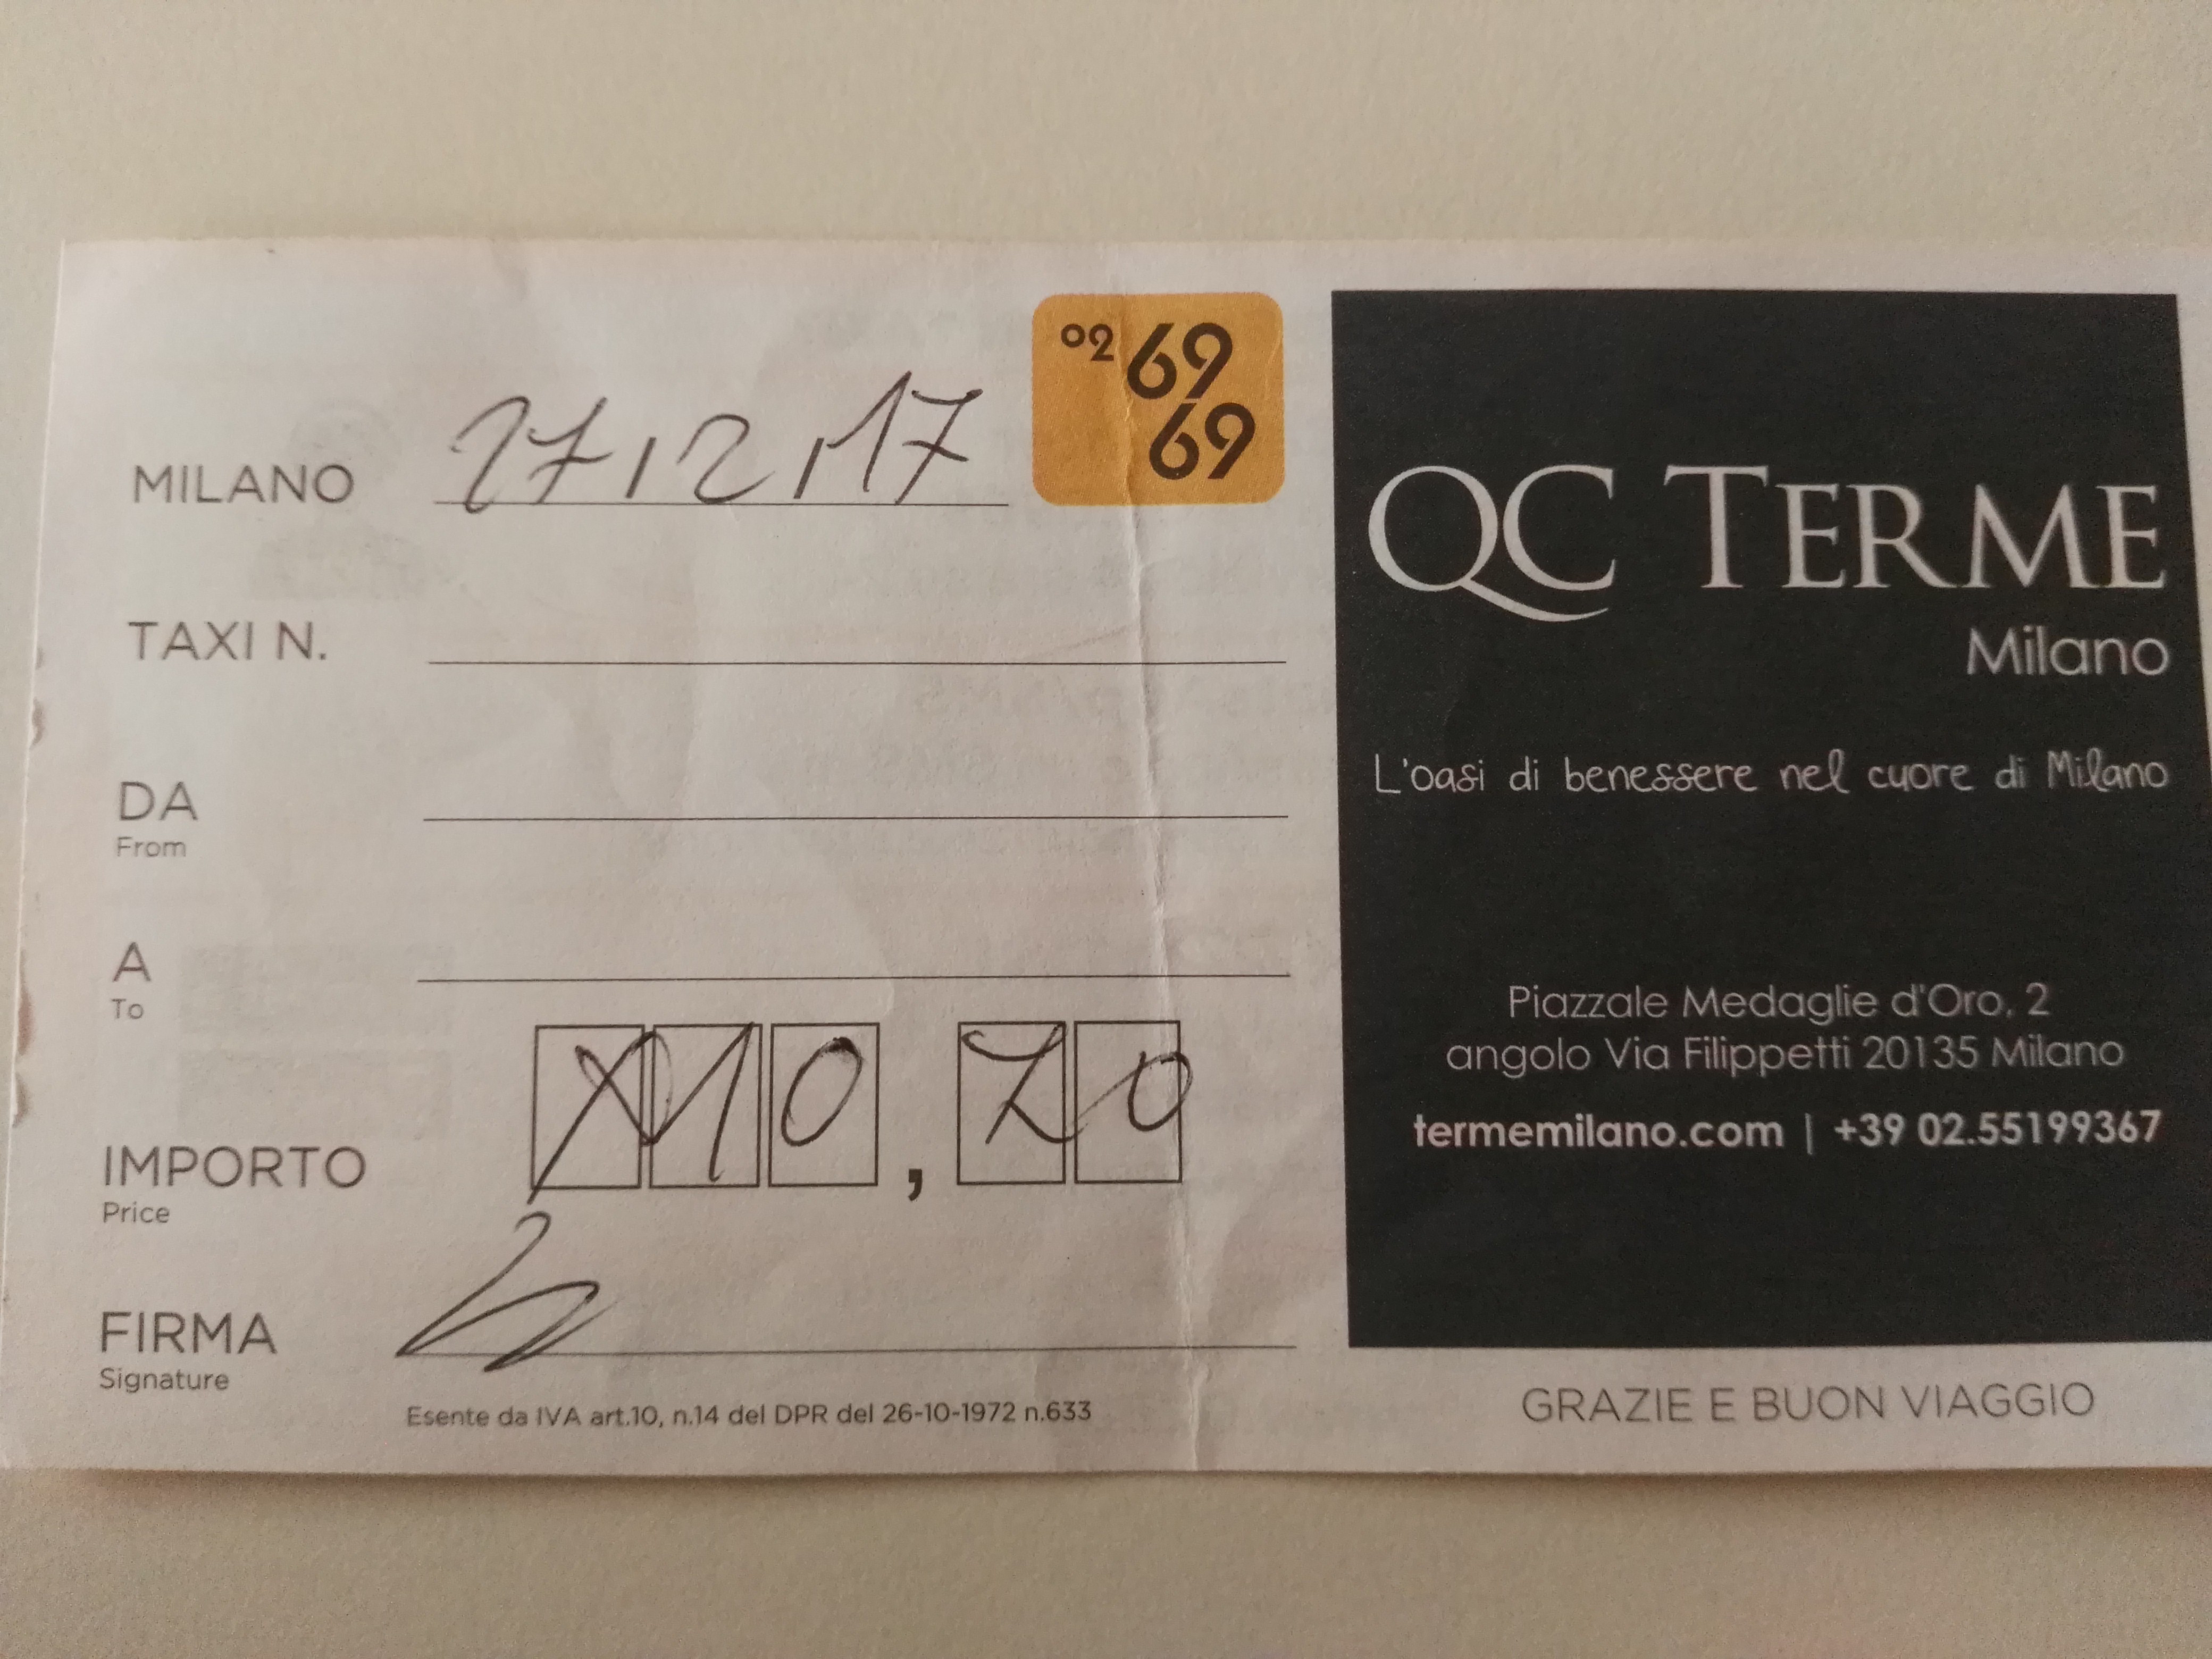 02 69
69
MILANO 27/2/17
TAXI N.
DA
From
A
To
IMPORTO X10,70
Price
FIRMA
Signature
Esente da IVA art.10, n.14 del DPR del 26-10-1972 n.633
QC TERME
Milano
L'oasi di benessere nel cuore di Milano
Piazzale Medaglie d'Oro, 2
angolo Via Filippetti 20135 Milano
termemilano.com | +39 02.55199367
GRAZIE E BUON VIAGGIO